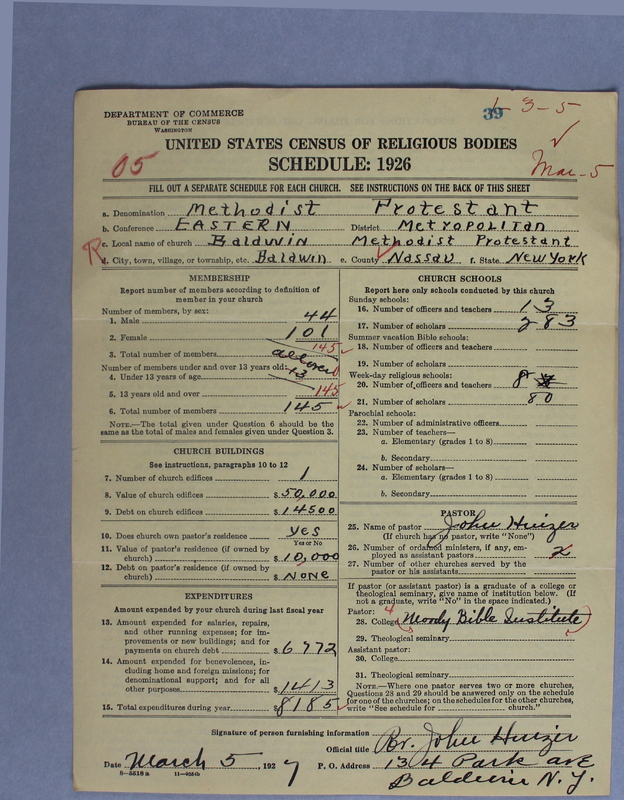 DEPARTMENT OF COMMERCE
BUREAU OF THE CENSUS
WASHINGTON
39 1-3-5
UNITED STATES CENSUS OF RELIGIOUS BODIES
05 SCHEDULE: 1926
Mar-5
FILL OUT A SEPARATE SCHEDULE FOR EACH CHURCH. SEE INSTRUCTIONS ON THE BACK OF THIS SHEET
a. Denomination Methodist Protestant
b. Conference EASTERN District METROPOLITAN
c. Local name of church Baldwin Methodist Protestant
d. City, town, village, or township, etc. Baldwin e. County Nassau f. State NEW YORK
MEMBERSHIP
Report number of members according to definition of
member in your church
Number of members, by sex:
1. Male 44
2. Female 101
3. Total number of members 145
Number of members under and over 13 years old: all over
4. Under 13 years of age 13 0
5. 13 years old and over 145
6. Total number of members 145
NOTE.—The total given under Question 6 should be the
same as the total of males and females given under Question 3.
CHURCH BUILDINGS
See instructions, paragraphs 10 to 12
7. Number of church edifices 1
8. Value of church edifices $50,000
9. Debt on church edifices $14500
10. Does church own pastor's residence yes
Yes or No
11. Value of pastor's residence (if owned by
church) $10,000
12. Debt on pastor's residence (if owned by
church) $NONE
EXPENDITURES
Amount expended by your church during last fiscal year
13. Amount expended for salaries, repairs,
and other running expenses; for im-
provements or new buildings; and for
payments on church debt $6772
14. Amount expended for benevolences, in-
cluding home and foreign missions; for
denominational support; and for all
other purposes $1413
15. Total expenditures during year $8185
CHURCH SCHOOLS
Report here only schools conducted by this church
Sunday schools:
16. Number of officers and teachers 13
17. Number of scholars 283
Summer vacation Bible schools:
18. Number of officers and teachers
19. Number of scholars
Week-day religious schools:
20. Number of officers and teachers 8
21. Number of scholars 80
Parochial schools:
22. Number of administrative officers
23. Number of teachers—
a. Elementary (grades 1 to 8)
b. Secondary
24. Number of scholars—
a. Elementary (grades 1 to 8)
b. Secondary
PASTOR
25. Name of pastor John Huizer
(If church has no pastor, write "None")
26. Number of ordained ministers, if any, em-
ployed as assistant pastors
27. Number of other churches served by the
pastor or his assistants
If pastor (or assistant pastor) is a graduate of a college or
theological seminary, give name of institution below. (If
not a graduate, write "No" in the space indicated.)
Pastor: 4
28. College Moody Bible Institute
29. Theological seminary
Assistant pastor:
30. College
31. Theological seminary
NOTE.—Where one pastor serves two or more churches,
Questions 28 and 29 should be answered only on the schedule
for one of the churches; on the schedules for the other churches,
write "See schedule for church."
Signature of person furnishing information
Official title Rev. John Huizer
Date March 5, 1927 P. O. Address 134 Park ave
8—5518a 11—9254b Baldwin N.Y.